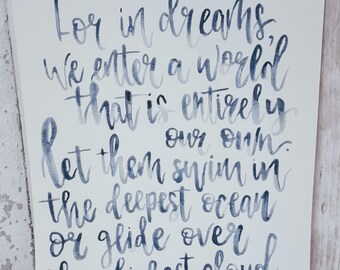 For in dreams,
we enter a world
that is entirely
our own.
Let them swim in
the deepest ocean
or glide over
the highest cloud